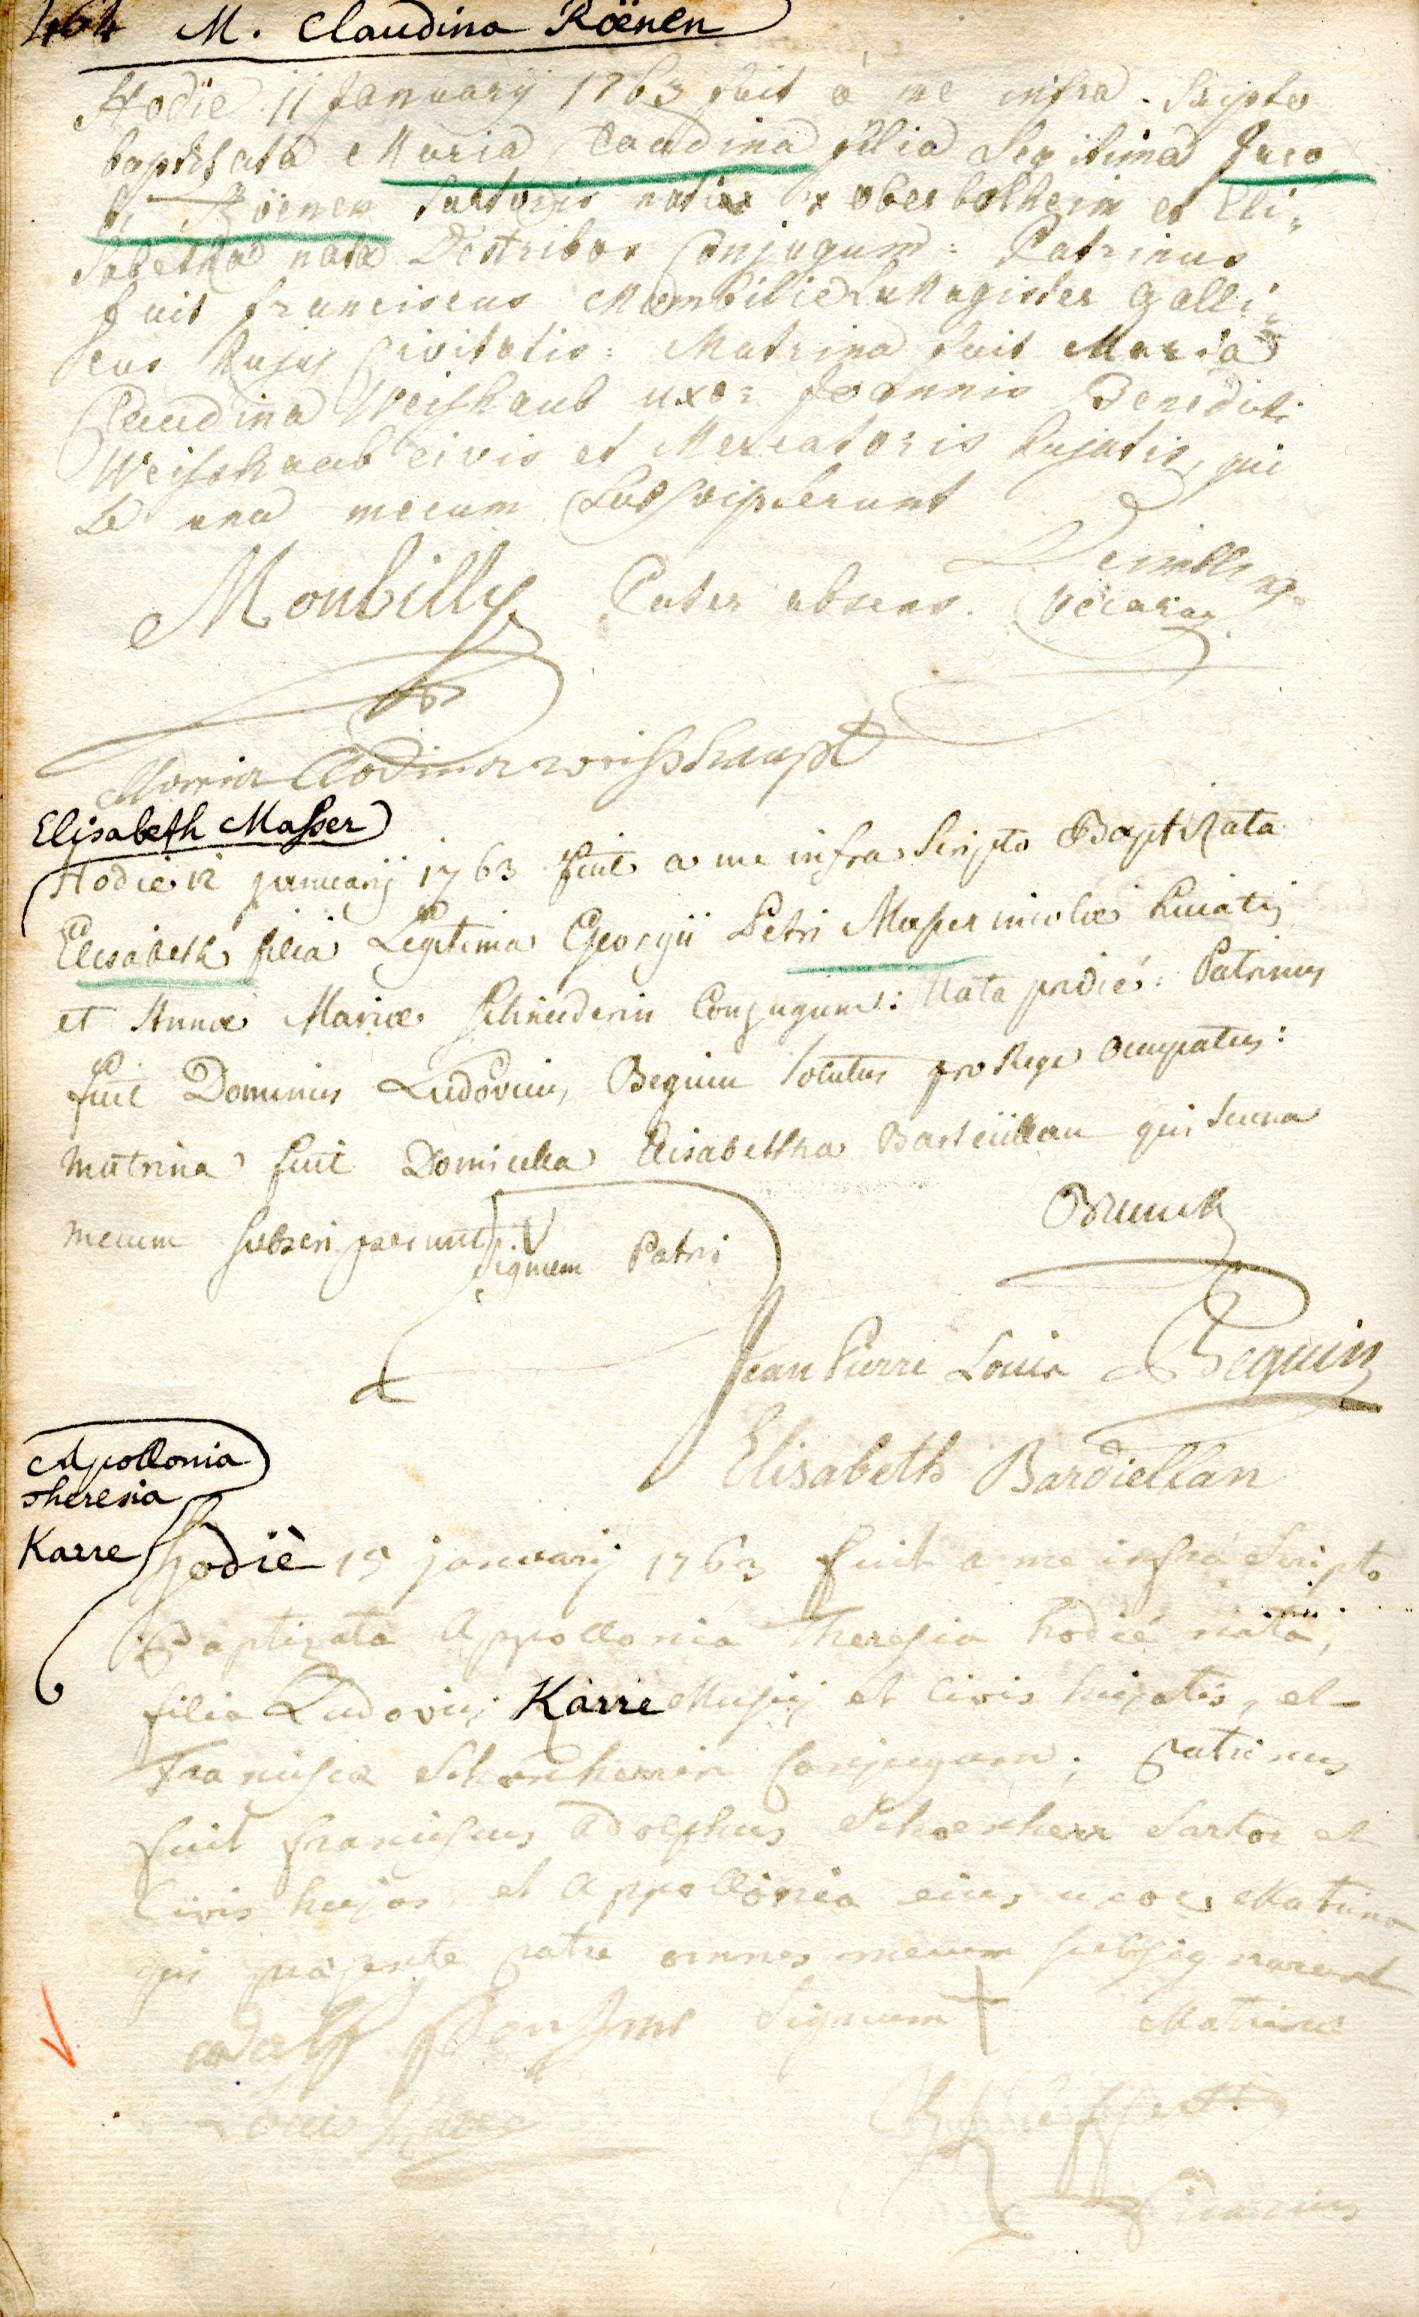 464 M. Claudina Röenen
Hodie 11 January 1763 fuit à me infra Scripto
baptisata Maria Caudina filia Legitima Jaco
bi Röenen Sartoris ex oberbotheim et Eli-
sabetha nata Destribos Conjugum: Patrinus
fuit franciscus Magister Galli-
cus hujus Civitatis: Matrina fuit Maria
Claudina Weishaub uxor Joannis Benedicti
Weishaub civis et Mercatoris hujatis, qui
se una mecum Subscripserunt
Monbilly Pater absens.
Maria Clodina weisshaupt
Elisabeth Masser
Hodie 12 january 1763 fuit a me infra Scripto Baptizata
Elisabeth filia Legitima Georgii Petri Masser incolæ huiatis
et Annæ Mariæ Schneiderin Conjugum: Nata pridié: Patrinus
fuit Dominus Ludovicus Beguin Solutus pro Rege Occupatus:
matrina fuit Domicella Elisabetha Bardiellan qui Se una
mecum subscripserunt
Signum Patris
Brunck
Jean Pierre Louis Beguin
Elisabeth Bardiellan
Apollonia
theresia
Karre hodiè 15 january 1763 fuit a me infra Scripto
Baptizata Appollonia Theresia hodié nata,
filia Ludovici Karre Musici et Civis hujatis, et
Francisca Schönherrin Conjugum; patrinus
fuit franciscus Adolphus Schoenherr Sartor et
Civis hujas et Appollonia eius uxor Matrina
qui præsente patre omnes mecum subsignarunt
Signum + Matrinæ
Louis Karre
Vicarius